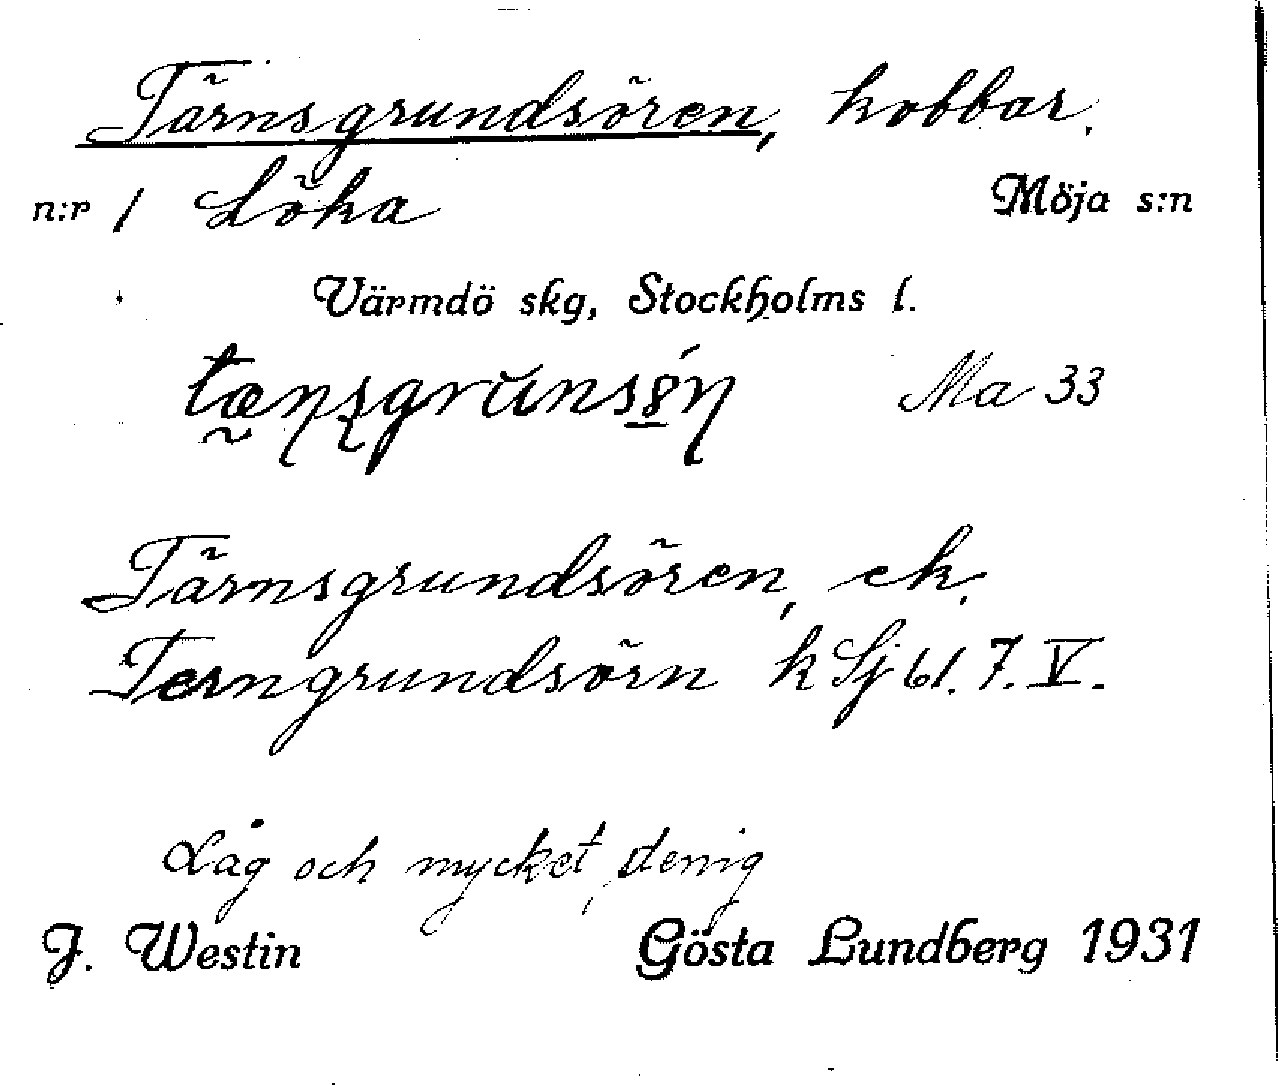 Tärnsgrundsören, kobbar.
n:r 1 Löka Möja s:n
Värmdö skg, Stockholms l.
Ma 33
Tärnsgrundsören, ek.
Terngrundsörn k Sj 61. 7. V.
Låg och mycket stenig
J. Westin Gösta Lundberg 1931